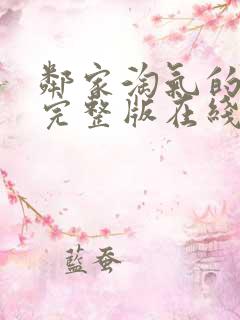 鄰家淘氣的
完整版在綫
藍蚕